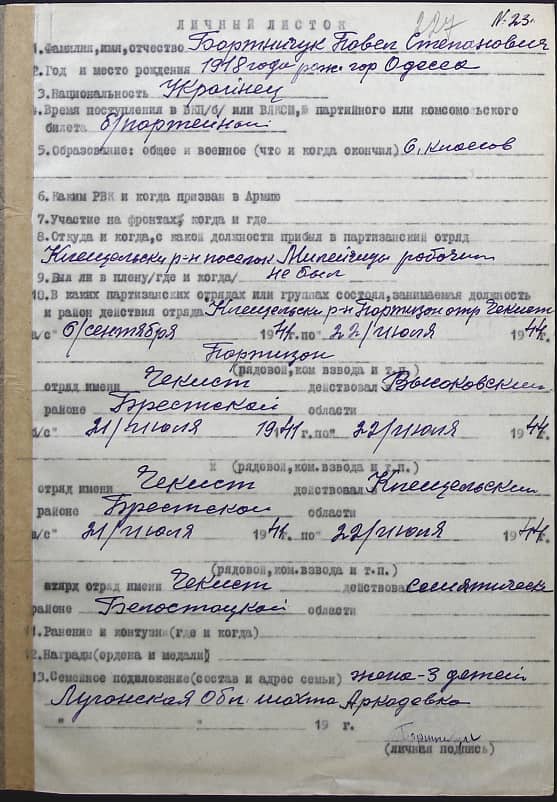 227 N-23.
ЛИЧНЫЙ ЛИСТОК
1.Фамилия,имя,отчество Бортничук Павел Степанович
2.Год и место рождения 1918 года рож. гор Одесса
3.Национальность Украинец
4.Время поступления в ВКП/б/ или ВЛКСМ,№ партийного или комсомольского
билета б/портейной
5.Образование: общее и военное (что и когда окончил) 6, классов
6.Каким РВК и когда призван в Армию
7.Участие на фронтах, когда и где
8.Откуда и когда,с какой должности прибыл в партизанский отряд
Клещельски р-н поселок Милейчицы робочим
9.Был ли в плену/где и когда/ не был
10.В каких партизанских отрядах или группах состоял,занимаемая должность
и район действия отряда Клещельски р-н Портизон отр Чекист
а/с" 6/сентября 1941г. по" 22/июля 1944г.
Портизон
(рядовой,ком взвода и т.п.)
отряд имени Чекист действовал Высоковским
районе Брестской области
б/с" 21/июля 1941г. по" 22/июля 1944г.
х (рядовой,ком.взвода и т.п.)
отряд имени Чекист действовал Клещельским
районе Брестской области
в/с" 21/июля 194г. по" 22/июля 1944г.
(рядовой,ком.взвода и т.п.)
отряд имени Чекист действова
районе Белостоцкой области
11.Ранение и контузия(где и когда)
12.Награды(ордена и медали)
13.Семейное положение(состав и адрес семьи) жена-3 детей
Луганская Обл. шахта Аркадевка
" " 19 г.
(личная подпись)